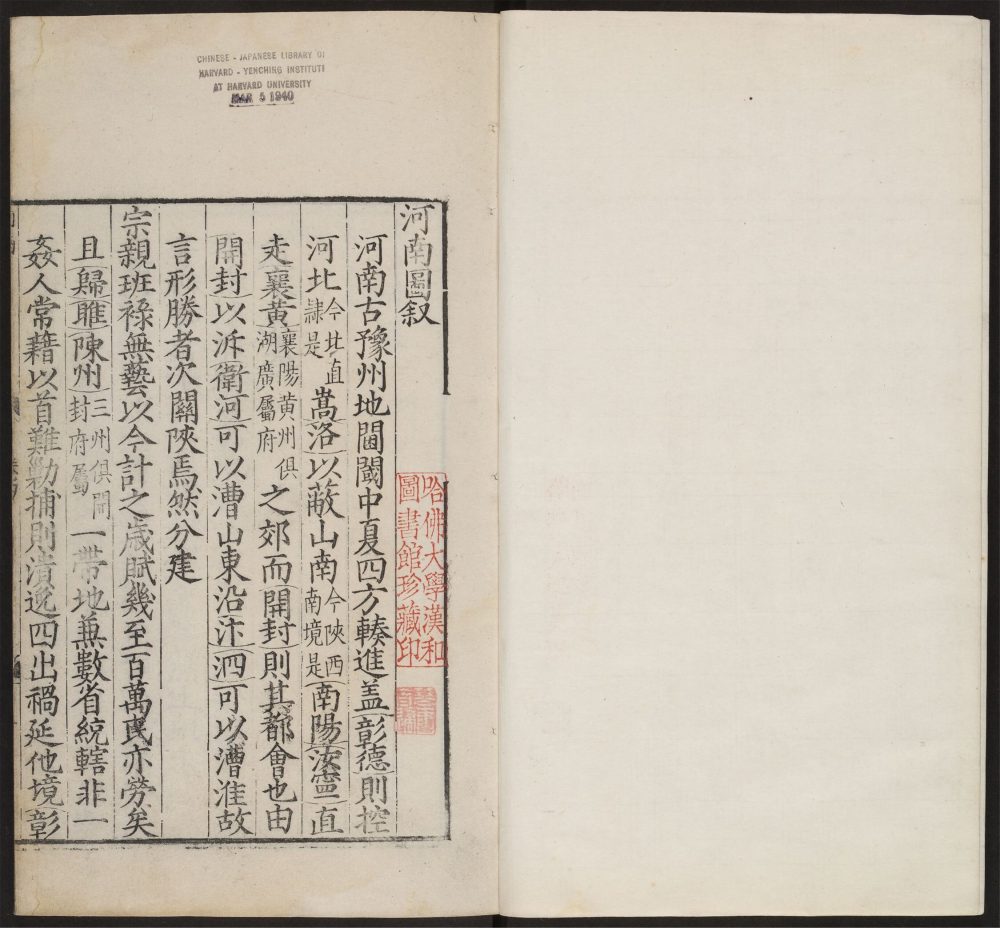 CHINESE - JAPANESE LIBRARY OF
HARVARD - YENCHING INSTITUTE
AT HARVARD UNIVERSITY
MAR 5 1940
河南圖叙
河南古豫州地閫閾中夏四方輳進盖彰德則控
河北今北直隸是嵩洛以蔽山南今陝西南境是南陽汝寧直
走襄黃襄陽黄州俱湖廣屬府之郊而開封則其都會也由
開封以泝衛河可以漕山東沿汴泗可以漕淮故
言形勝者次關陜焉然分建
宗親班祿無藝以今計之歲賦幾至百萬民亦勞矣
且歸睢陳州三州俱開封府屬一帶地兼數省統轄非一
姦人常藉以首難勦捕則潰逸四出禍延他境彰
哈佛大學漢和
圖書館珍藏印